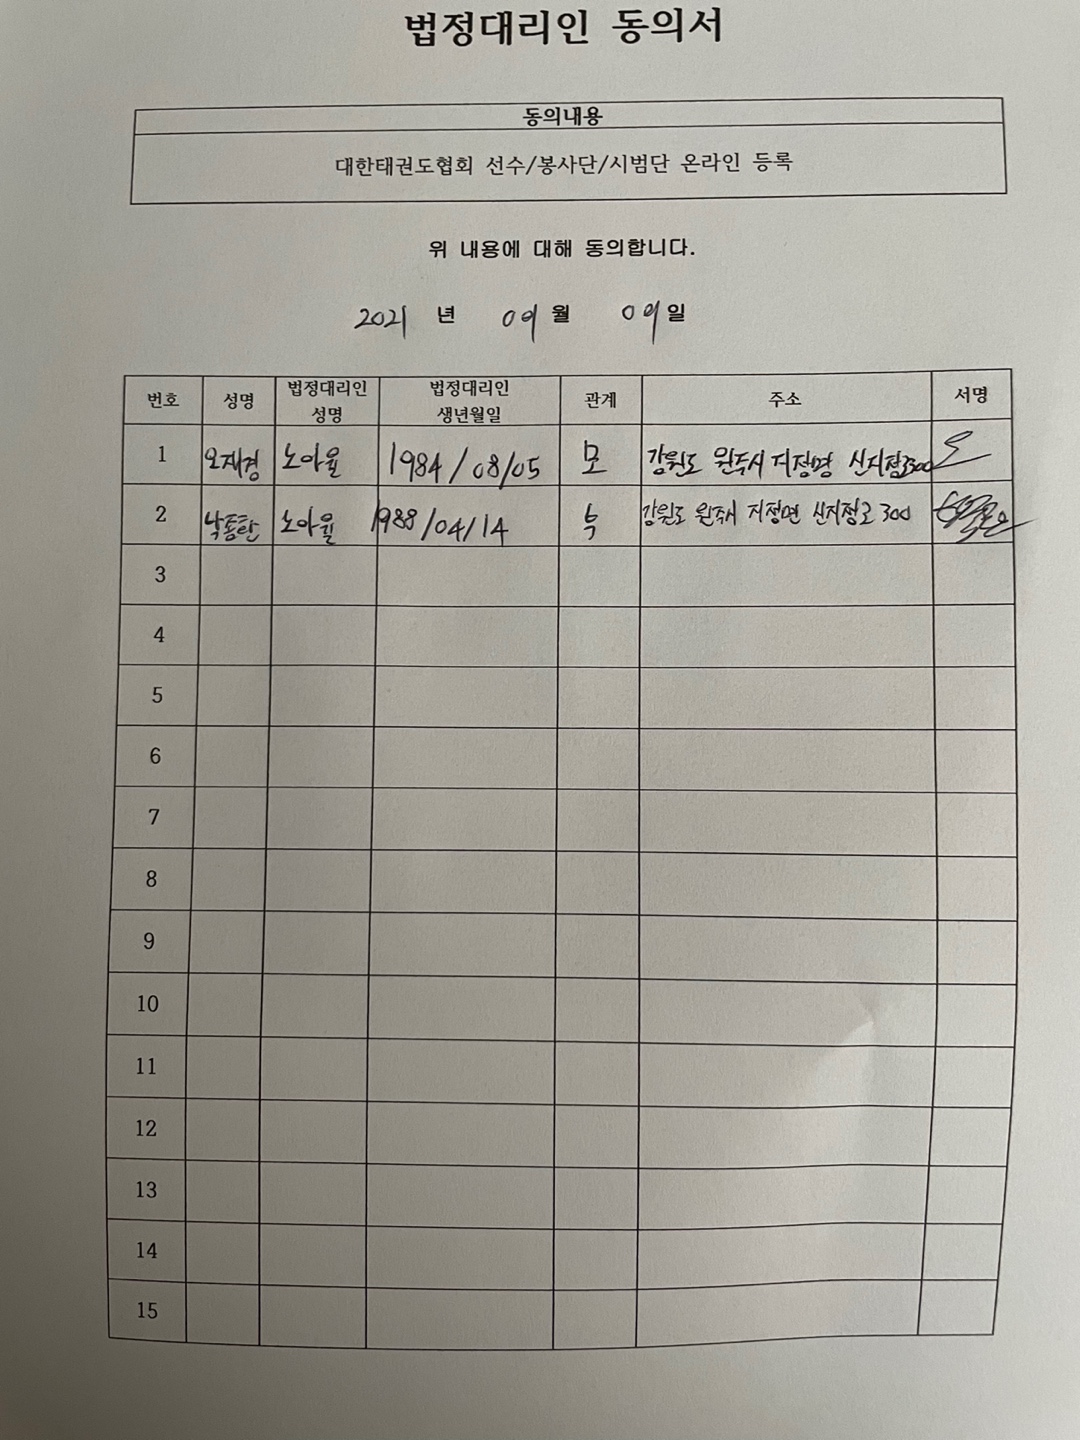 법정대리인 동의서
동의내용
대한태권도협회 선수/봉사단/시범단 온라인 등록
위 내용에 대해 동의합니다.
2021 년 09 월 09 일
번호 성명 법정대리인 성명 법정대리인 생년월일 관계 주소 서명
1 오재경 노아윤 1984/08/05 모 강원도 원주시 지정면 신지정로300
2 노아윤 1988/04/14 부 강원도 원주시 지정면 신지정로 300
3
4
5
6
7
8
9
10
11
12
13
14
15